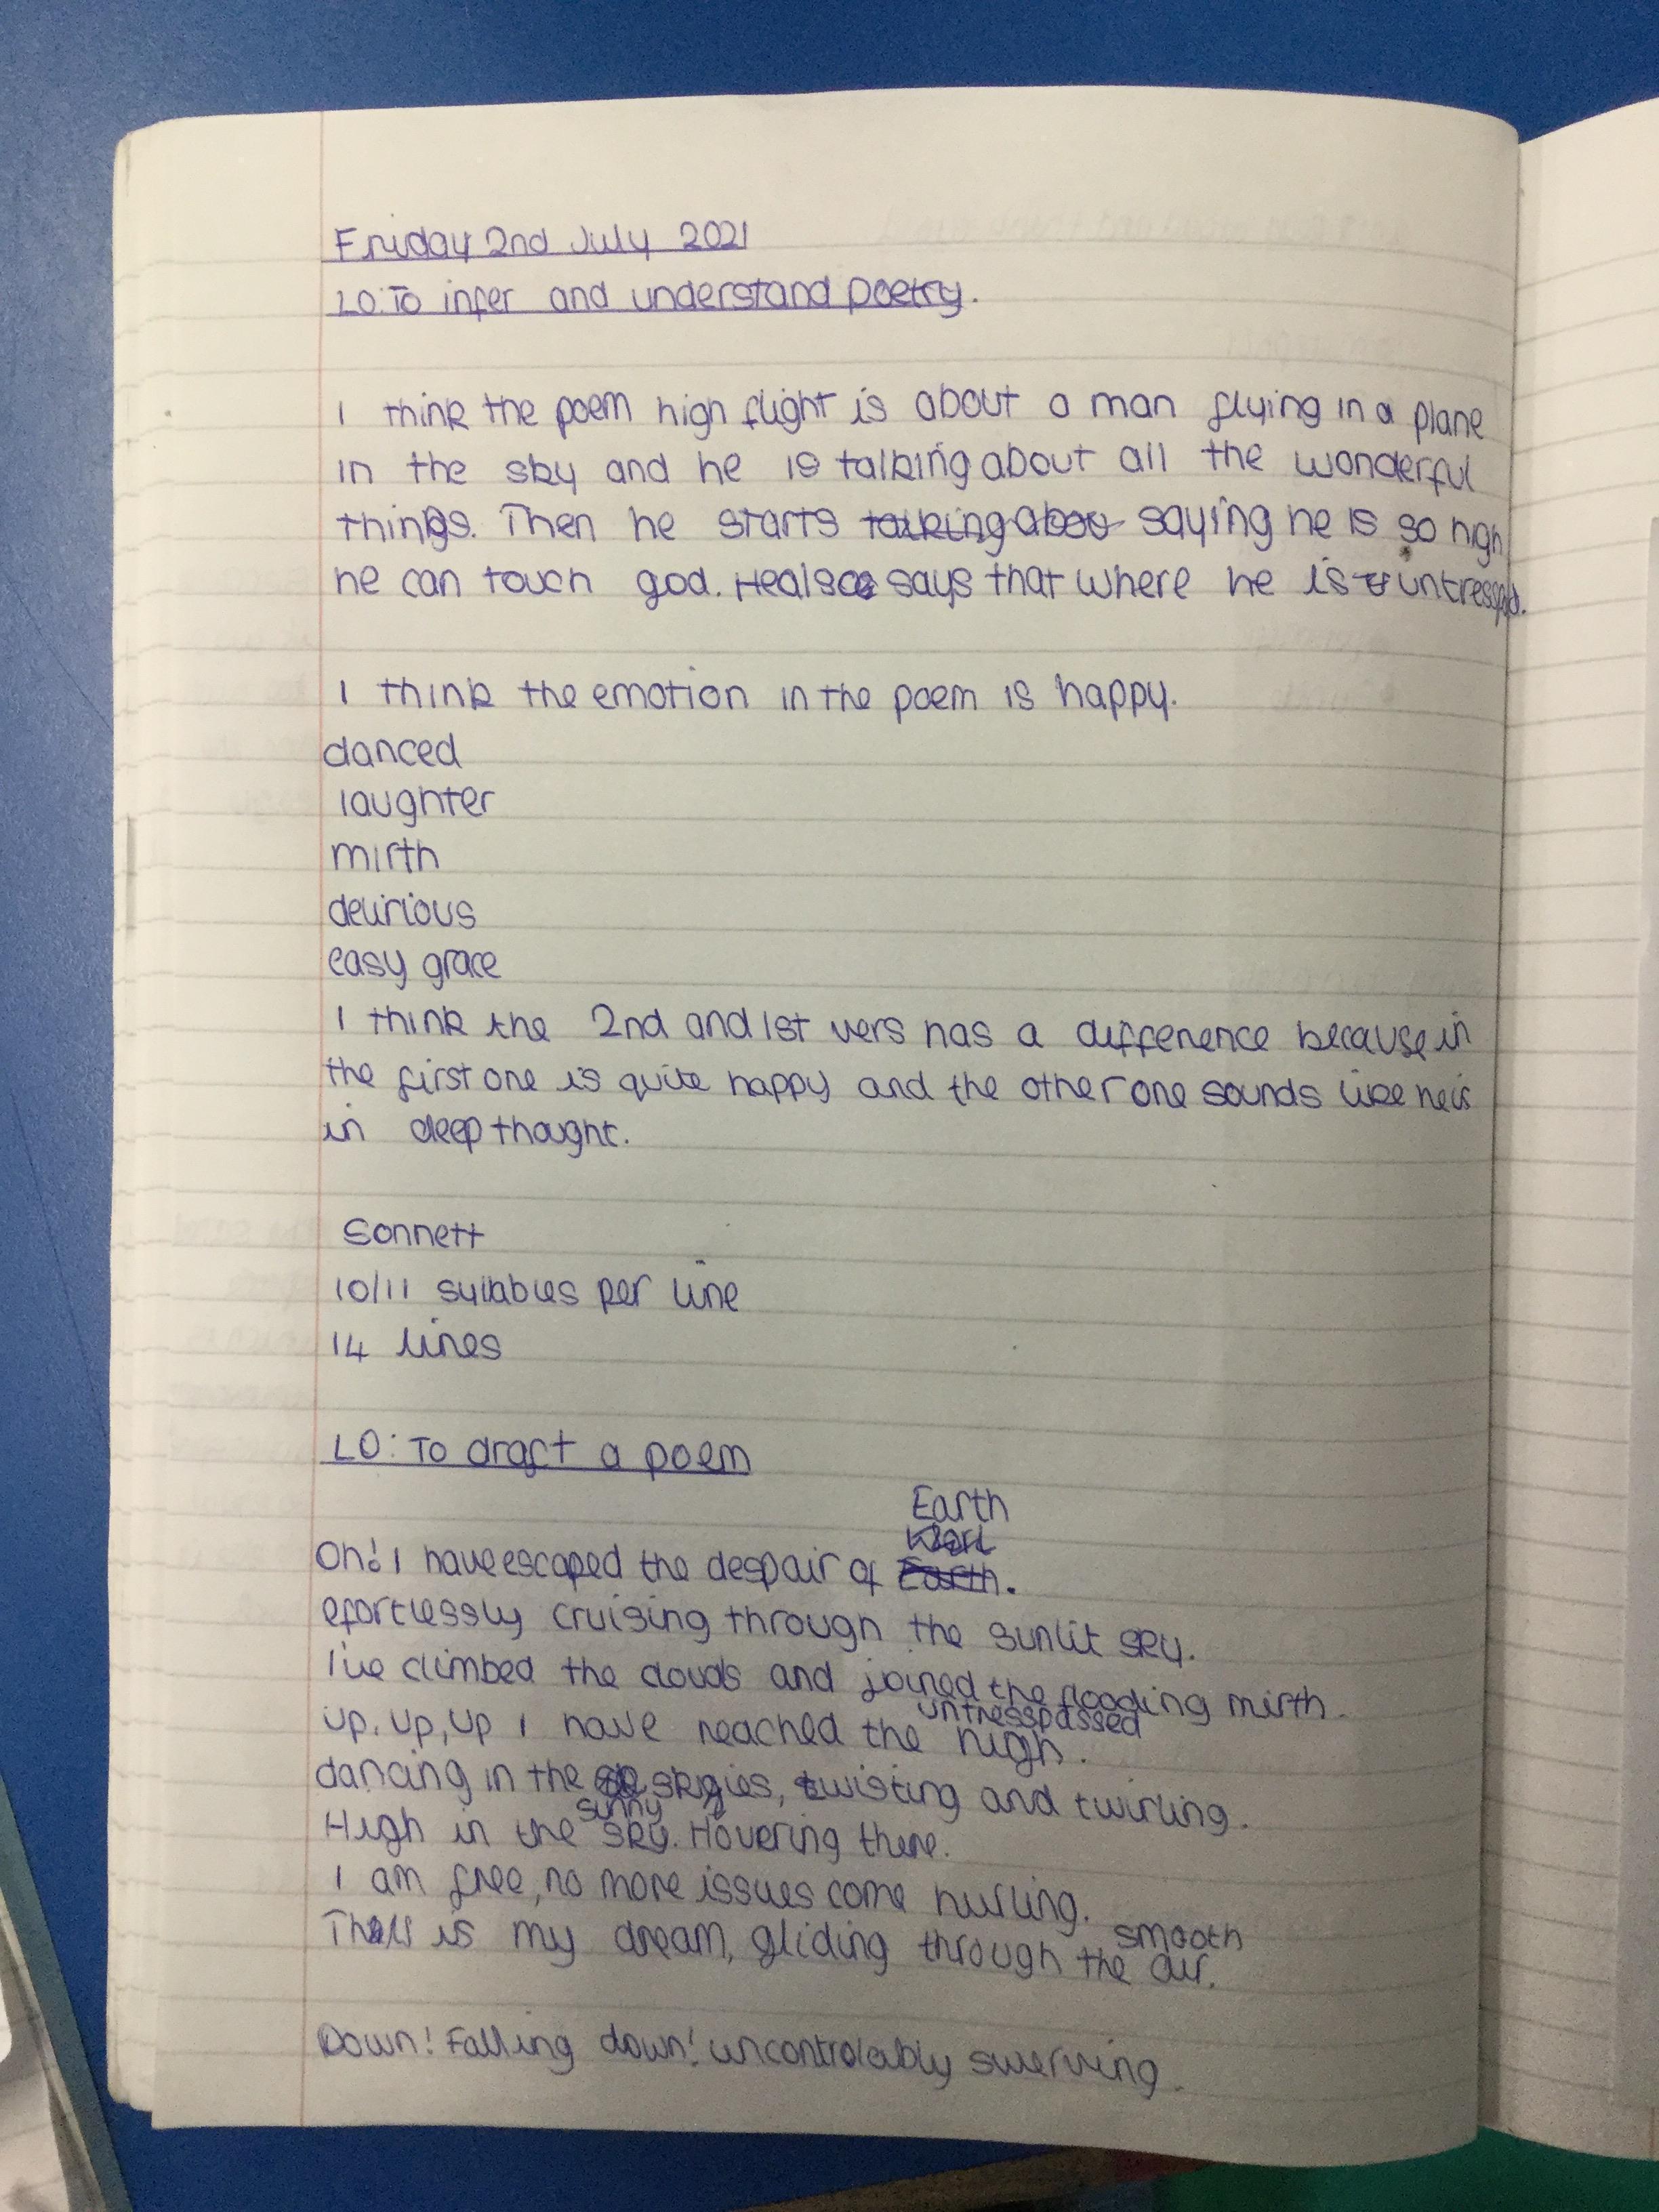 Friday 2nd July 2021
LO: To infer and understand poetry.
I think the poem high flight is about a man flying in a plane
in the sky and he is talking about all the wonderful
things. Then he starts talking abou saying he is so high
he can touch god. He also says that where he is untresspd.
I think the emotion in the poem is happy.
danced
laughter
mirth
delirious
easy grace
I think the 2nd and 1st vers has a difference because in
the first one is quite happy and the other one sounds like he is
in deep thought.
Sonnett
10/11 syllables per line
14 lines
LO: To draft a poem
Earth
Oh! I have escaped the despair of Earth.
efortlessly cruising through the sunlit sky.
I've climbed the clouds and joined the flooding mirth.
untresspassed
up, up, up I have reached the high.
dancing in the skyies, twisting and twirling.
sunny
High in the sky. Hovering there.
I am free, no more issues come hurling.
smooth
This is my dream, gliding through the air.
Down! Falling down! uncontrolably swerving.